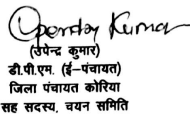 Upendra Kumar
(उपेन्द्र कुमार)
डी.पी.एम. (ई-पंचायत)
जिला पंचायत कोरिया
सह सदस्य, चयन समिति